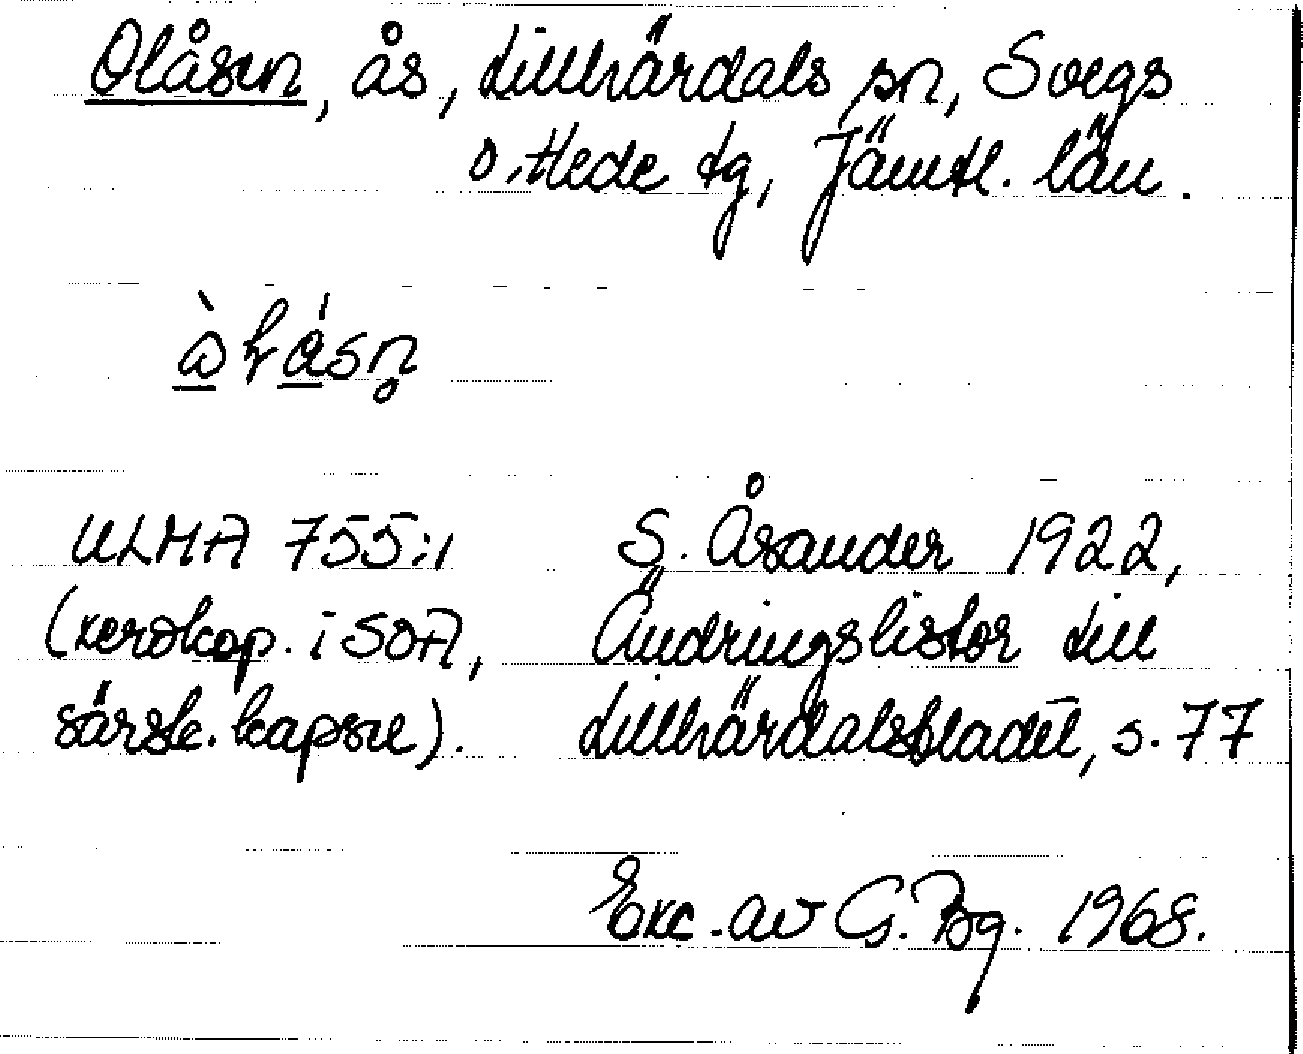 Olåsen, ås, Lillhärdals sn, Svegs
o. Hede tg, Jämtl. län.
ULMA 755:1
(xerokop. i SOA,
särsk. kapsel).
S. Åsander 1922,
Ändringslistor till
Lillhärdalsbladet, s. 77
Exc. av G. Bg. 1968.